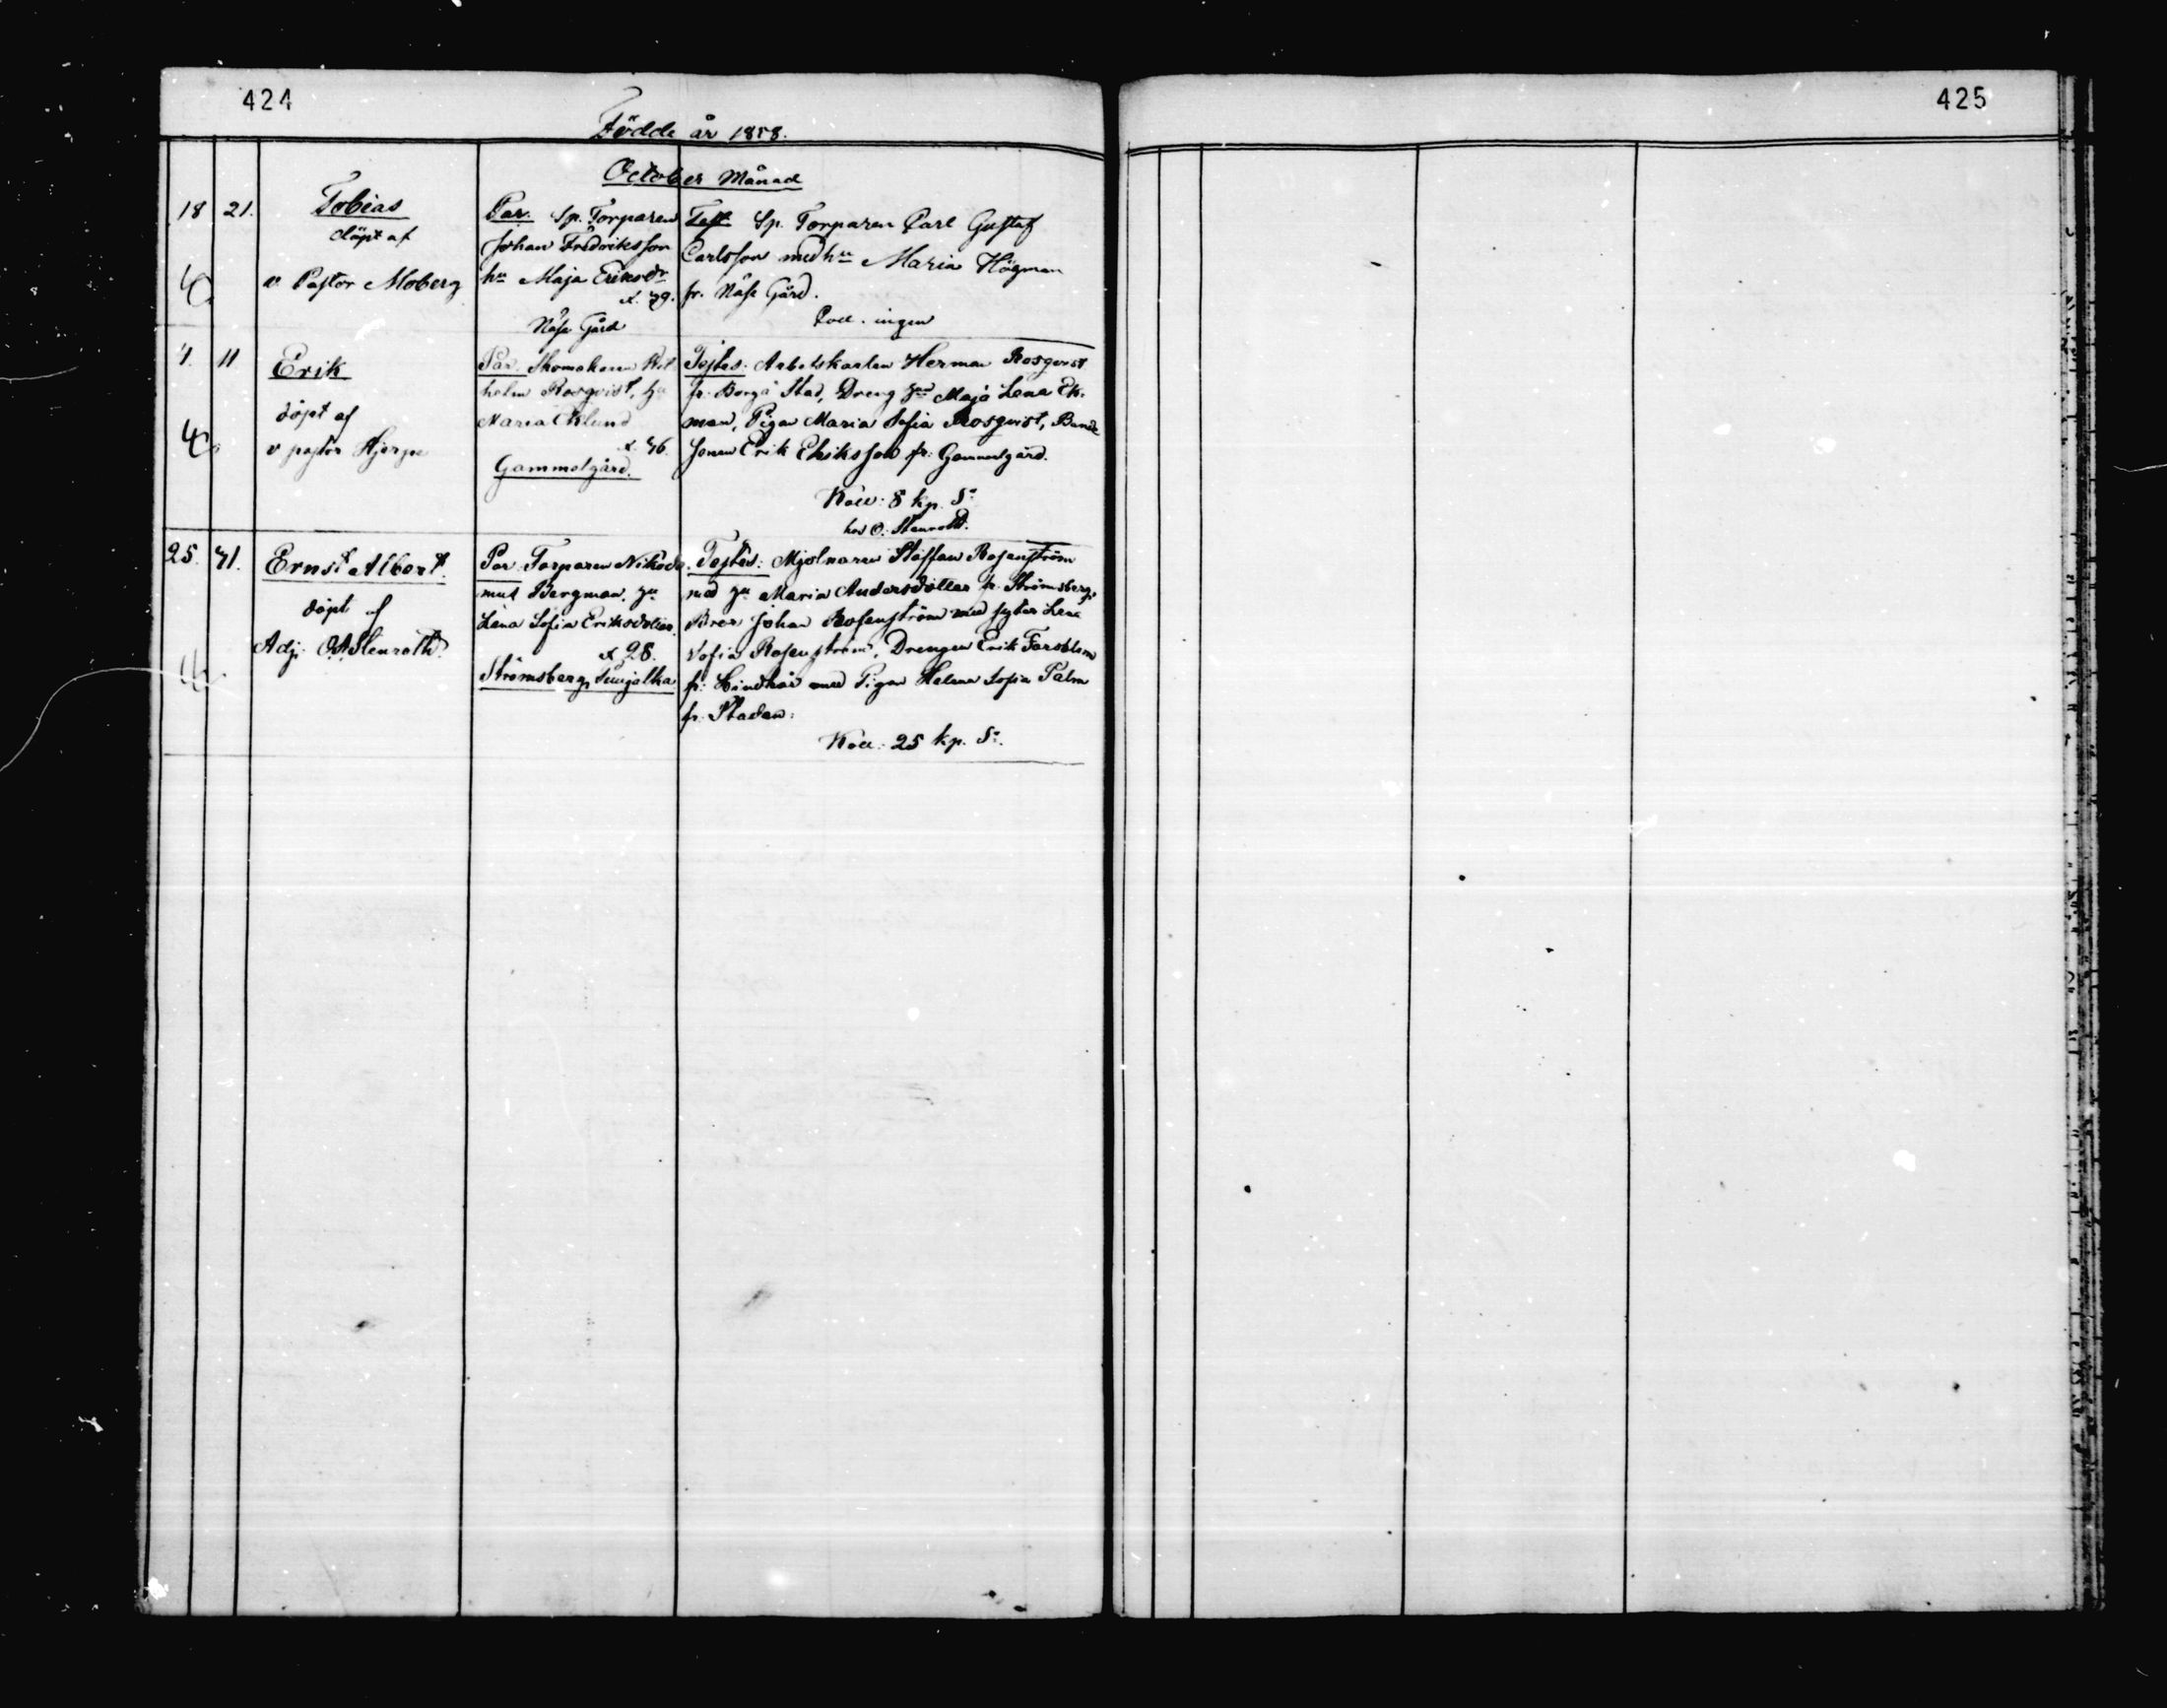 424
425
Födde år 1858.
October Månad
18 21.
Tobias
döpt af
v Pastor Moberg
Par. Sp. Torparen
Johan Fredriksson
hu Maja Eriksdr
x. 49.
Näse Gård
Test Sp. Torparen Carl Gustaf
Carlsson med hu Maria Högman
fr. Näse Gård.
Coll. ingen
11
Erik
döpt af
v pastor Hjerpe
Par. Skomakaren
holm Rosqvist, hu
Maria Eklund
x. 46.
Gammelgård.
Testes: Arbetskarlen Herman Rosqvist
fr. Borgå Stad, Dreng Maja Lena Ek-
man, Pigan Maria Sofia Rosqvist, Bonde
sonen Erik Eriksson fr: Gammelgård.
Koll: 8 kp. Sr
hos O. Stenroth.
25. 31.
Ernst Albert.
döpt af
Adj: O. Stenroth.
Par Torparen Nikode-
mus Bergman, hu
Lena Sofia Eriksdotter.
x 28.
Strömsberg
Testes: Mjölnaren Staffan Rosenström
med hu Maria Andersdotter fr. Strömsberg,
Bror Johan Rosenström med syster Lena
Sofia Rosenström, Drengen Erik Forsblom
fr: Hindhår med Pigan Helena Sofia Palm
fr: Staden:
Koll: 25 kp. Sr.